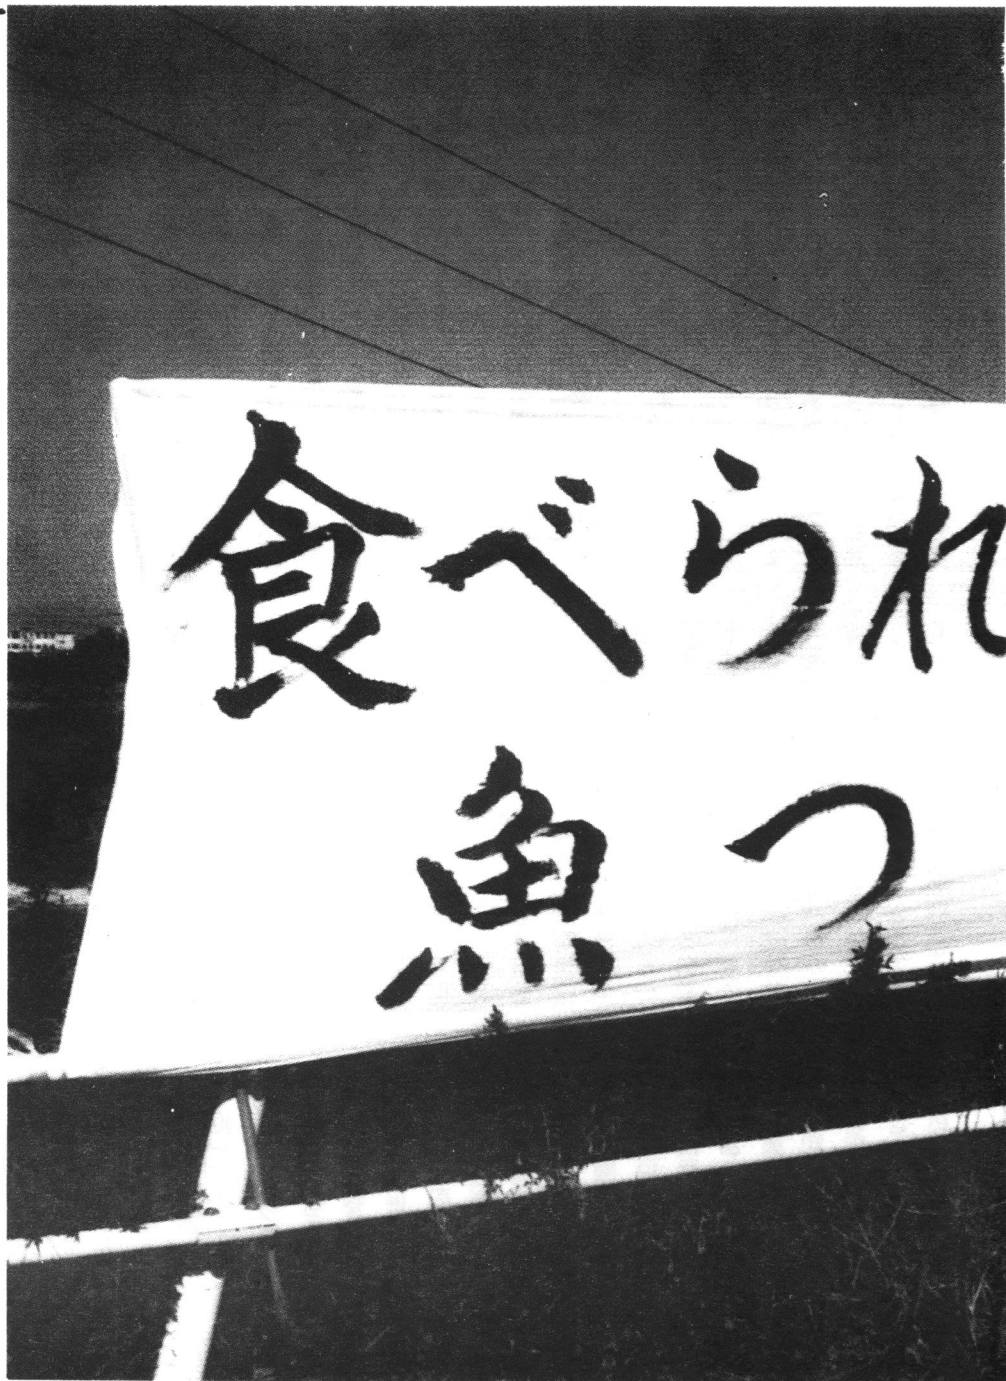 食べられ
魚つ